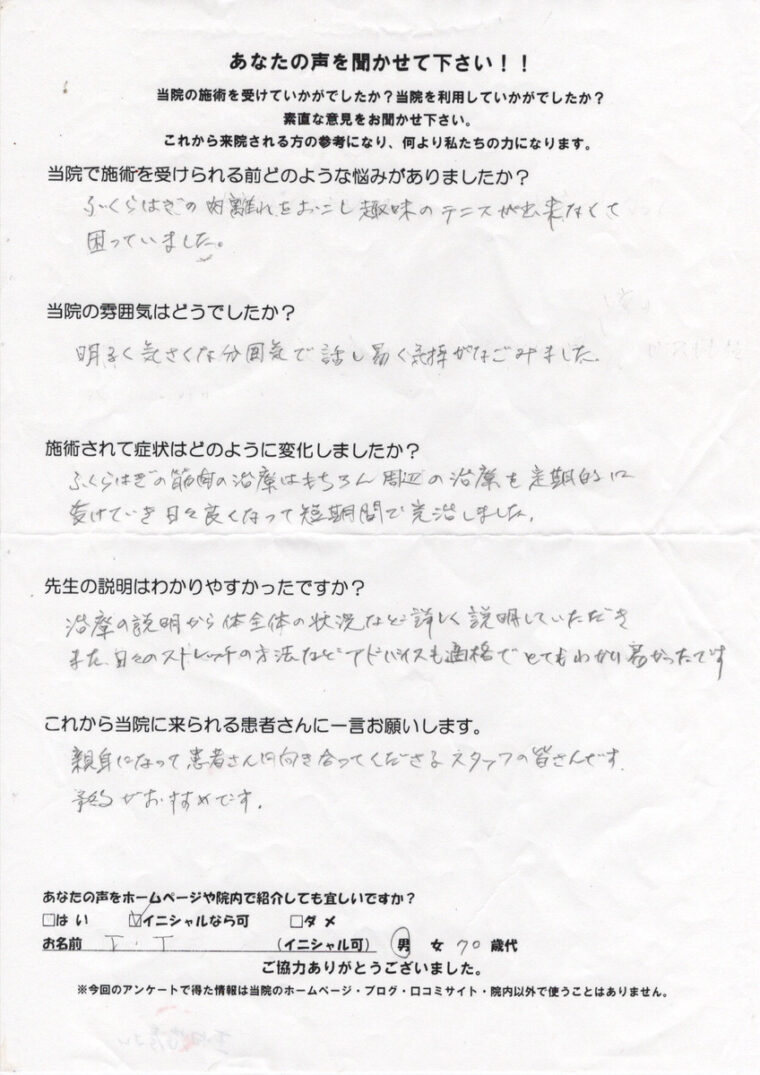 あなたの声を聞かせて下さい！！
当院の施術を受けていかがでしたか？当院を利用していかがでしたか？
素直な意見をお聞かせ下さい。
これから来院される方の参考になり、何より私たちの力になります。
当院で施術を受けられる前どのような悩みがありましたか？
ふくらはぎの肉離れをおこし趣味のテニスが出来なくて
困っていました。
当院の雰囲気はどうでしたか？
明るく気さくな分囲気で話し易く気持がなごみました。
施術されて症状はどのように変化しましたか？
ふくらはぎの筋肉の治療はもちろん周辺の治療を定期的に
受けていき日々良くなって短期間で完治しました。
先生の説明はわかりやすかったですか？
治療の説明から体全体の状況など詳しく説明していただき
また、日々のストレッチの方法などアドバイスも適格でとてもわかり易かったです
これから当院に来られる患者さんに一言お願いします。
親身になって患者さんに向き合ってくださるスタッフの皆さんです。
予約がおすすめです。
あなたの声をホームページや院内で紹介しても宜しいですか？
□はい ☑イニシャルなら可 □ダメ
お名前 I・T （イニシャル可） 男 女 70 歳代
ご協力ありがとうございました。
※今回のアンケートで得た情報は当院のホームページ・ブログ・口コミサイト・院内以外で使うことはありません。